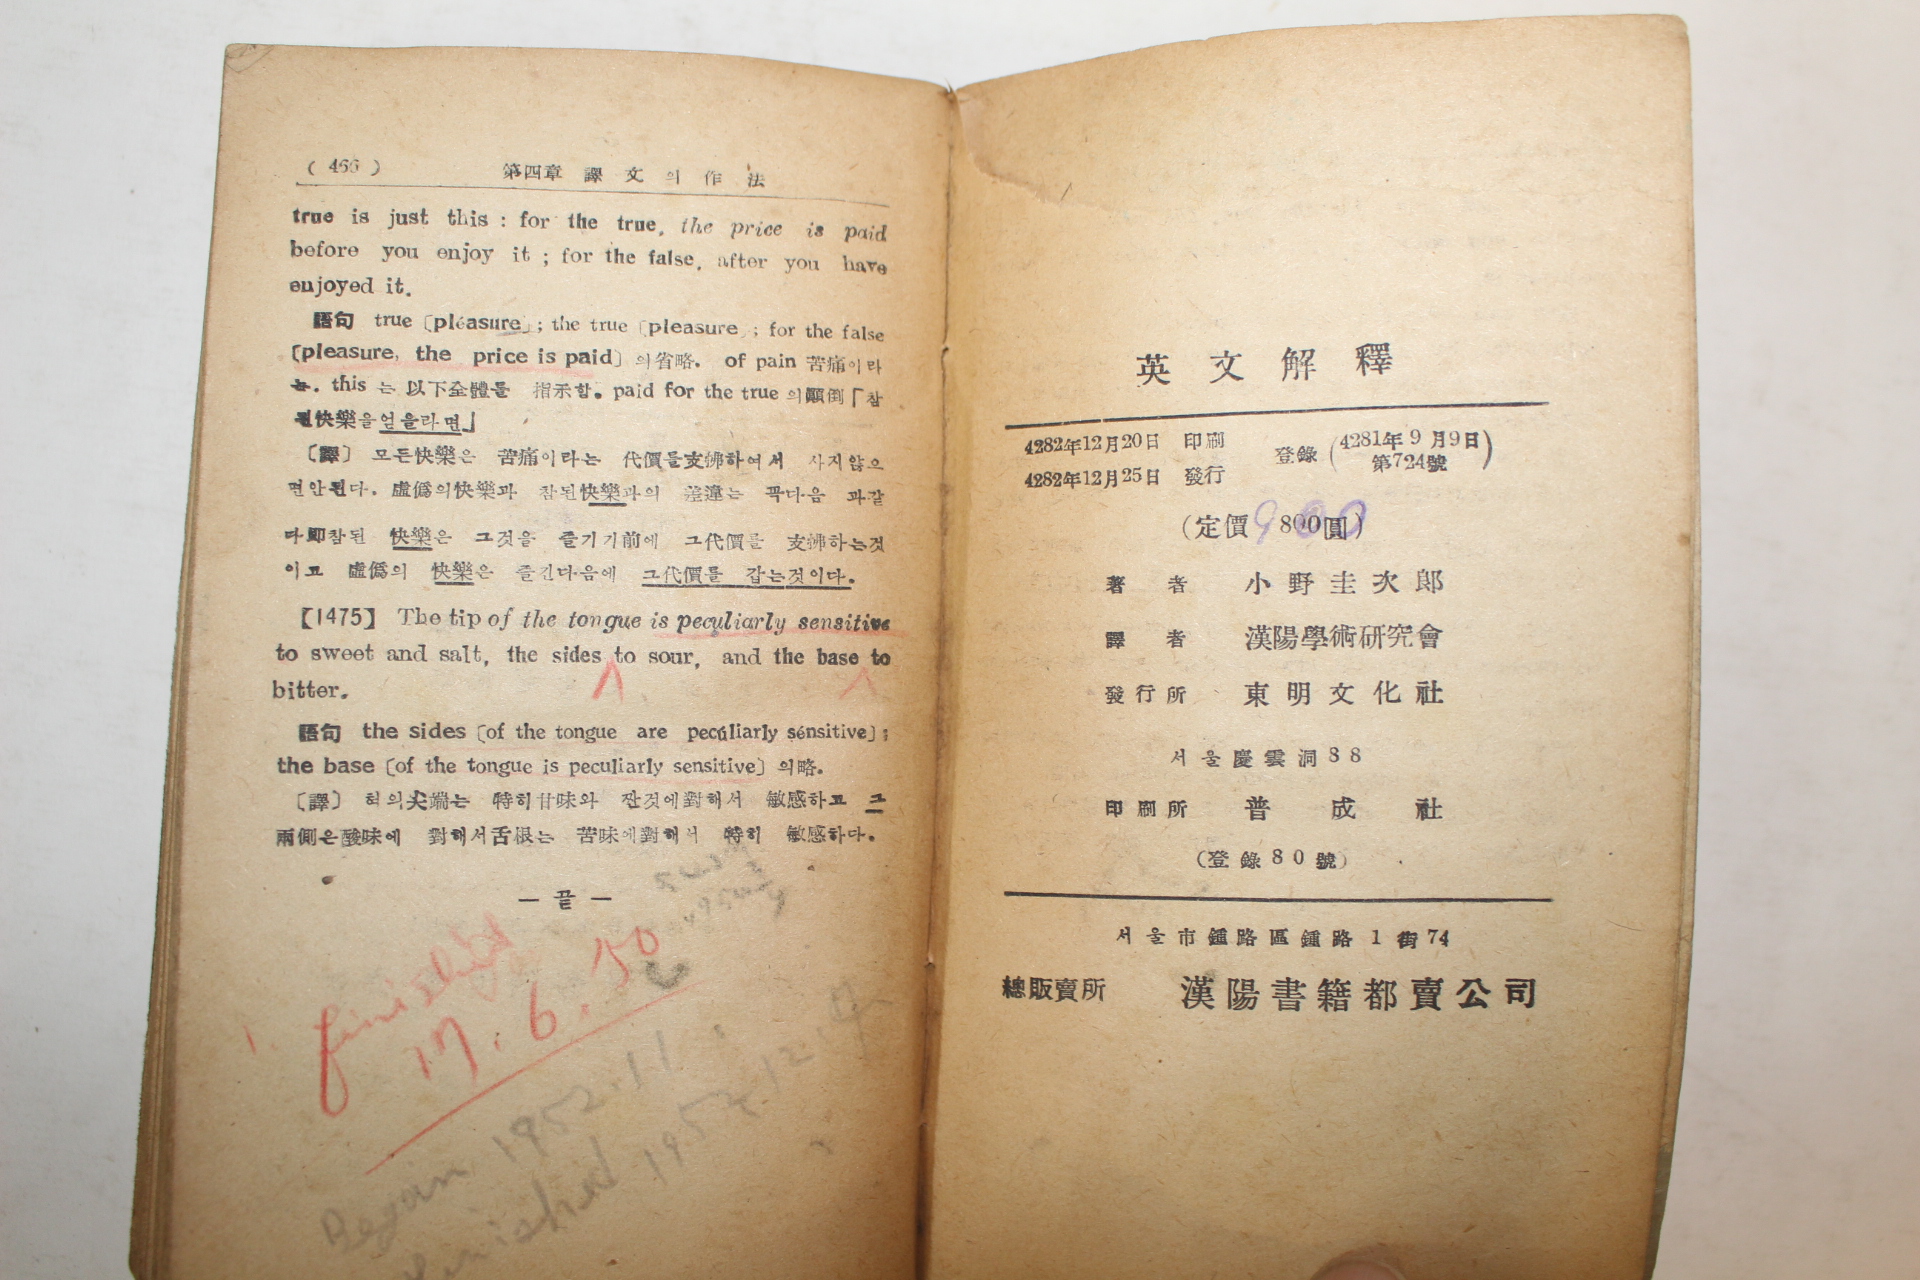 ( 466 ) 第四章 譯文의作法
true is just this : for the true, the price is paid
before you enjoy it ; for the false, after you have
enjoyed it.
語句 true 〔pleasure〕; the true 〔pleasure〕; for the false
〔pleasure, the price is paid〕 의省略. of pain 苦痛이라
는. this 는 以下全體를 指示함. paid for the true 의顚倒「참
된快樂을얻을라면」
〔譯〕 모든快樂은 苦痛이라는 代價를支拂하여서 사지않으
면안된다. 虛僞의快樂과 참된快樂과의 差違는 꼭다음 과같
다即참된 快樂은 그것을 즐기기前에 그代價를 支拂하는것
이고 虛僞의 快樂은 즐긴다음에 그代價를 갑는것이다.
【1475】 The tip of the tongue is peculiarly sensitive
to sweet and salt, the sides to sour, and the base to
bitter.
語句 the sides 〔of the tongue are peculiarly sensitive〕;
the base 〔of the tongue is peculiarly sensitive〕 의略.
〔譯〕 혀의尖端는 特히甘味와 짠것에對해서 敏感하고 그
兩側은酸味에 對해서舌根는 苦味에對해서 特히 敏感하다.
— 끝 —
17. 6. 50
Began 1952. 11.
finished 1952. 12.
英文解釋
4282年12月20日 印刷
4282年12月25日 發行
登錄 (4281年9月9日 第724號)
(定價 800圓) 900
著者 小野圭次郎
譯者 漢陽學術研究會
發行所 東明文化社
서울慶雲洞88
印刷所 普成社
(登錄80號)
서울市鍾路區鍾路1街74
總販賣所 漢陽書籍都賣公司